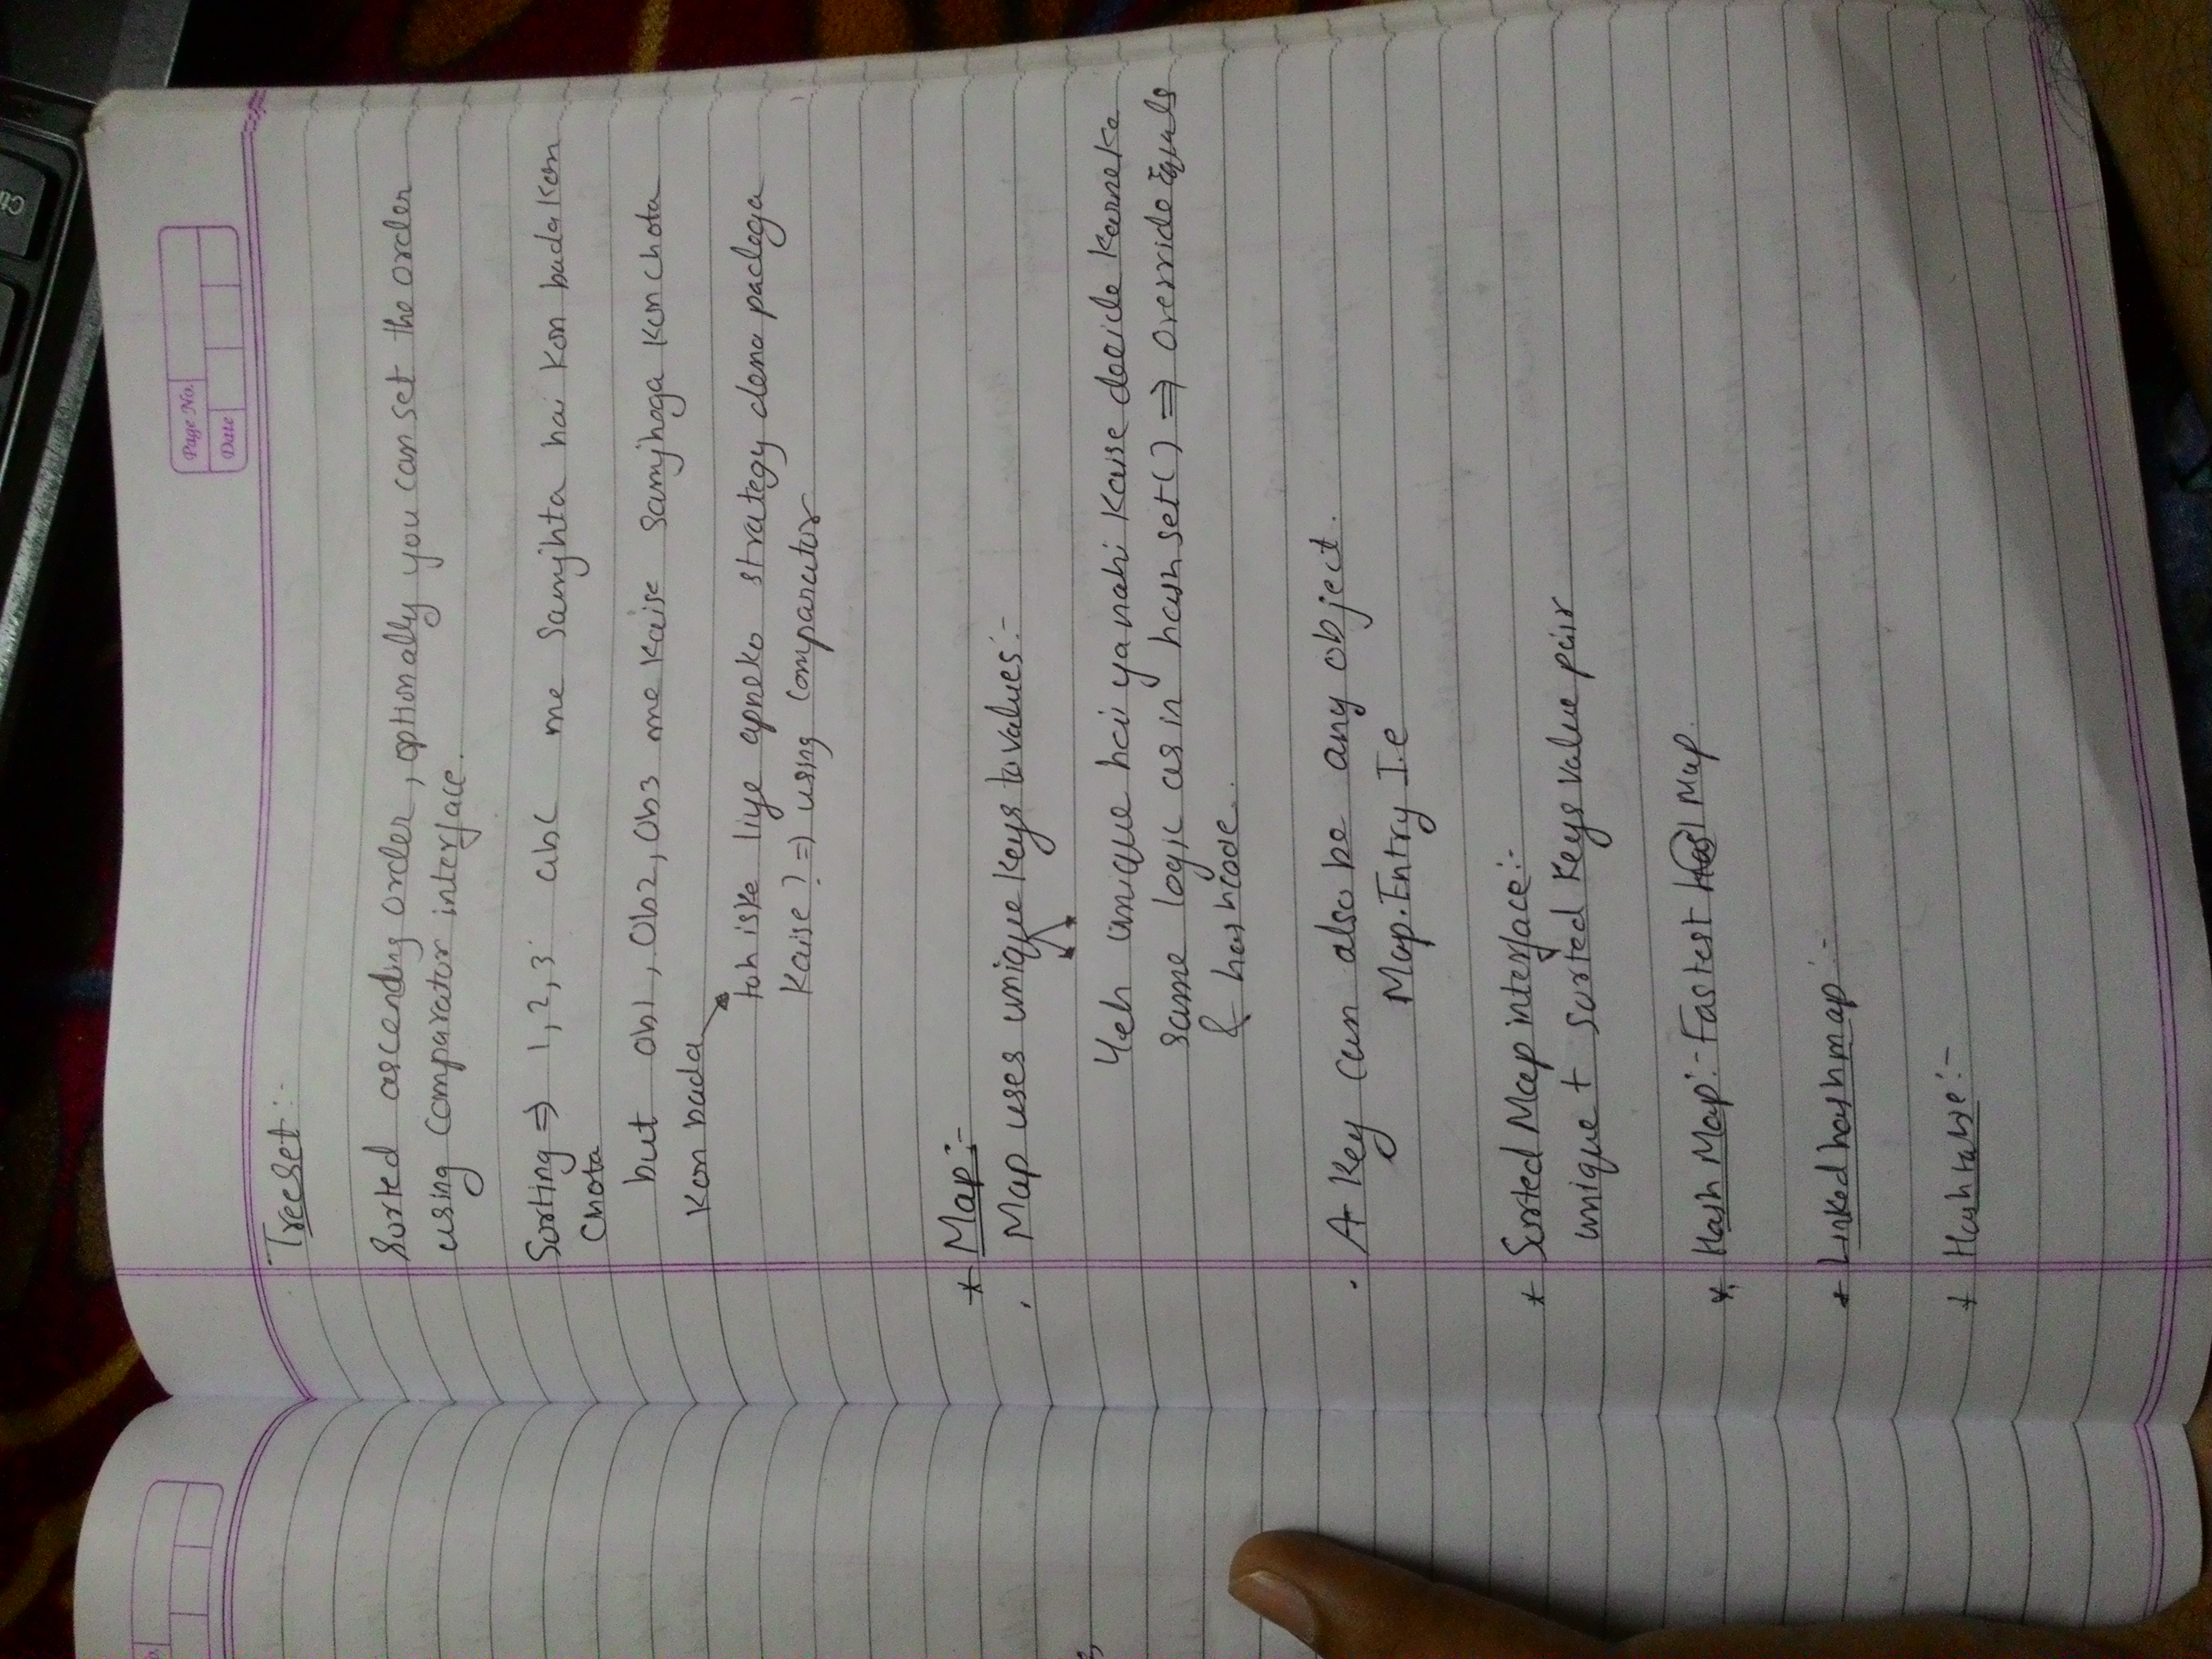 Page No.
Date
TreeSet:-
Sorted ascending order, optionally you can set the order
using Comparator interface.
Sorting ⇒ 1, 2, 3 abc me Samjhta hai Kon bada Kon
Chota
but Ob1, Ob2, Ob3 me Kaise Samjhega Kon chota
Kon bada
toh iske liye apneko strategy dena padega
Kaise? ⇒ using Comparator
* Map:-
. Map uses unique Keys to values:-
Yeh unique hai ya nahi Kaise decide Karneka
same logic as in hash set() ⇒ override Equals
& hashcode..
. A Key can also be any object.
Map.Entry I.e
* Sorted Map interface:-
unique + Sorted Keys value pair
* Hash Map:- Fastest Map.
* Linked hashmap:-
* Hashtable:-
Ct